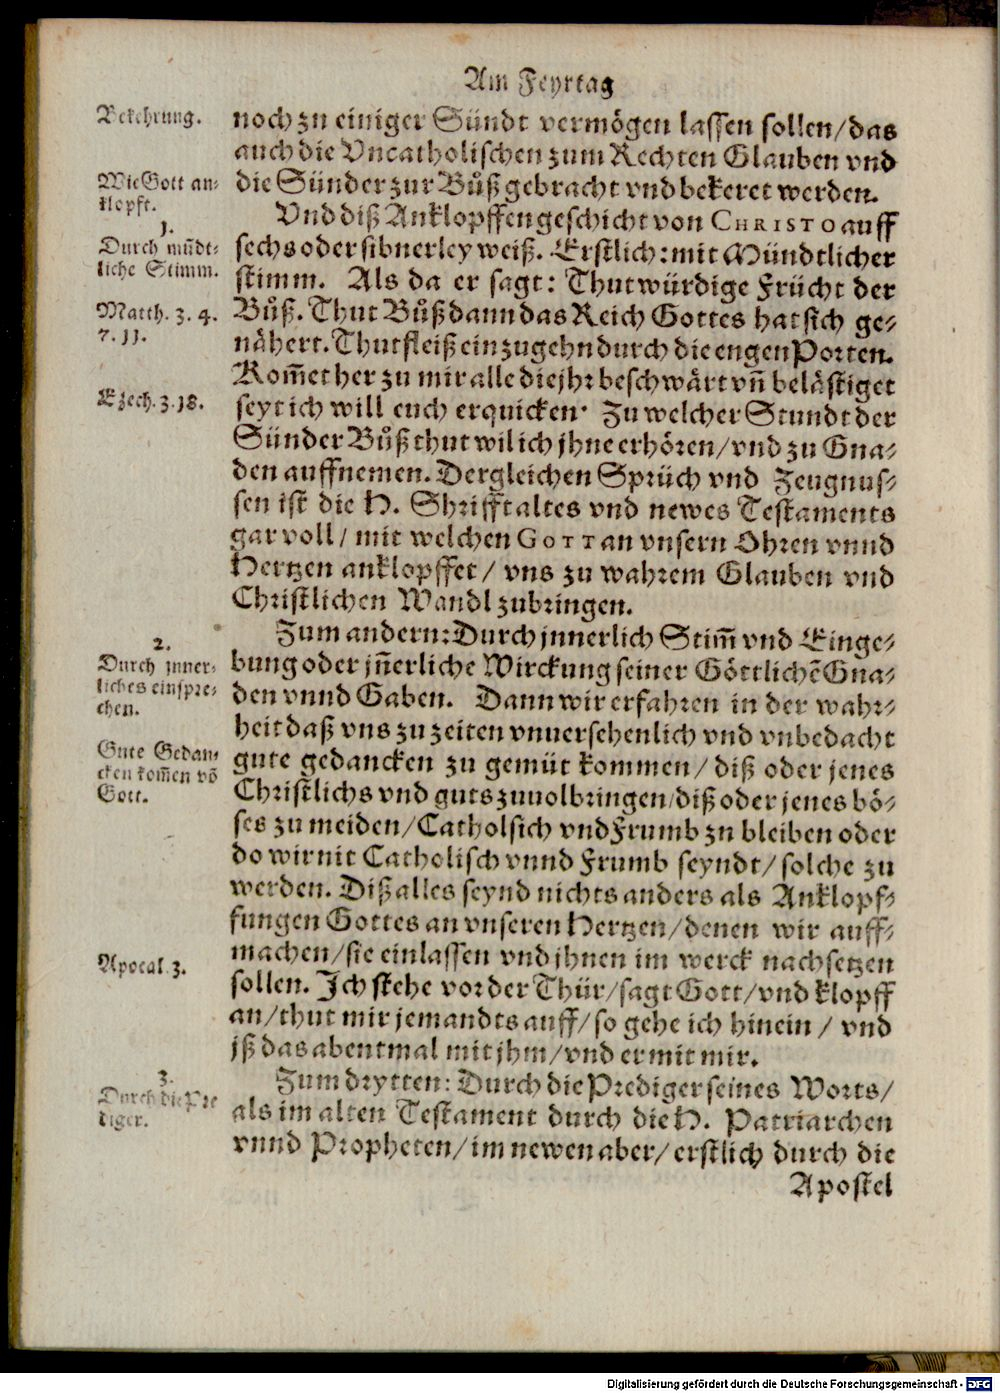 Am Feyrtag
Bekehrung.
noch zu einiger Sündt vermögen lassen sollen/das
auch die Vncatholischen zum Rechten Glauben vnd
Wie Gott an-
klopft.
die Sünder zur Bůß gebracht vnd bekeret werden.
Vnd diß Anklopffen geschicht von CHRISTO auff
1.
Durch mũdt-
liche Stimm.
sechs oder sibnerley weiß. Erstlich: mit Mündtlicher
stimm. Als da er sagt: Thut würdige Frücht der
Matth. 3. 4.
7. 11.
Bůß. Thut Bůß dann das Reich Gottes hat sich ge-
nähert. Thut fleiß einzugehn durch die engen Porten.
Kom̃et her zu mir alle die jhr beschwärt vñ belästiget
Ezech. 3. 18.
seyt ich will euch erquicken. Zu welcher Stundt der
Sünder Bůß thut wil ich jhne erhören/vnd zu Gna-
den auffnemen. Dergleichen Sprüch vnd Zeugnus-
sen ist die H. Shrifft altes vnd newes Testaments
gar voll/ mit welchen GOTT an vnsern Ohren vnnd
Hertzen anklopffet/ vns zu wahrem Glauben vnd
Christlichen Wandl zubringen.
Zum andern: Durch jnnerlich Stim̃ vnd Einge-
2.
Durch jnner-
liches einspre-
chen.
bung oder jñerliche Wirckung seiner Göttlichẽ Gna-
den vnnd Gaben. Dann wir erfahren in der wahr-
heit daß vns zu zeiten vnuersehenlich vnd vnbedacht
Gute Gedan-
cken kom̃en võ
Gott.
gute gedancken zu gemüt kommen/ diß oder jenes
Christlichs vnd guts zuuolbringen/diß oder jenes bö-
ses zu meiden/Catholsich vnd Frumb zn bleiben oder
do wir nit Catholisch vnnd Frumb seyndt/ solche zu
werden. Diß alles seynd nichts anders als Anklopf-
fungen Gottes an vnseren Hertzen/denen wir auff-
machen/sie einlassen vnd jhnen im werck nachsetzen
Apocal. 3.
sollen. Jch stehe vor der Thür/sagt Gott/vnd klopff
an/thut mir jemandts auff/so gehe ich hinein / vnd
jß das abentmal mit jhm/vnd er mit mir.
3.
Durch die Pre
diger.
Zum drytten: Durch die Prediger seines Worts/
als im alten Testament durch die H. Patriarchen
vnnd Propheten/im newen aber/ erstlich durch die
Apostel
Digitalisierung gefördert durch die Deutsche Forschungsgemeinschaft - DFG